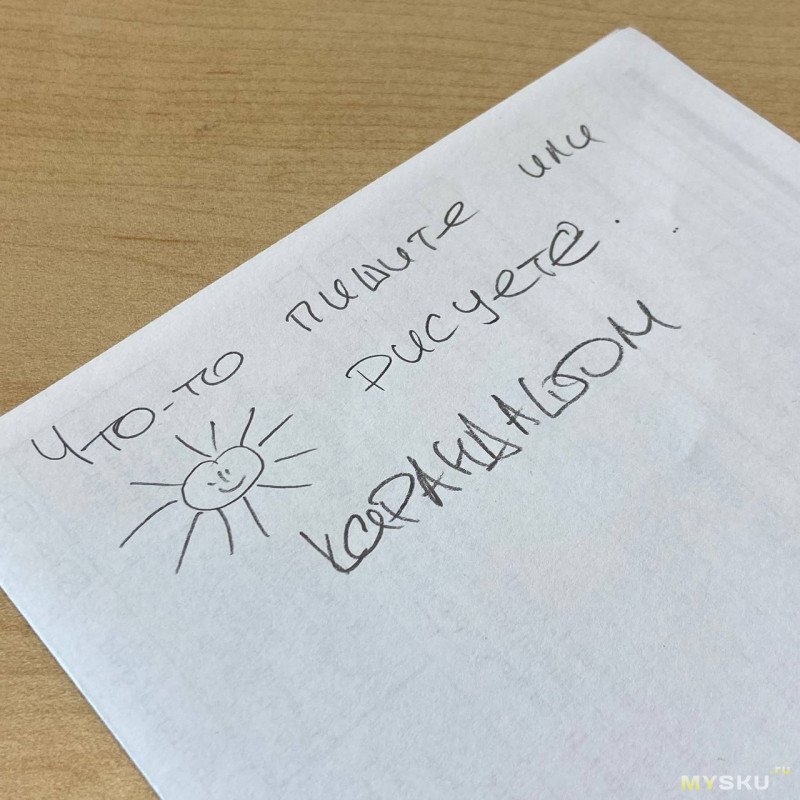 Что-то пишите или
рисуете.
КАРАНДАШОМ
MYSKU.ru